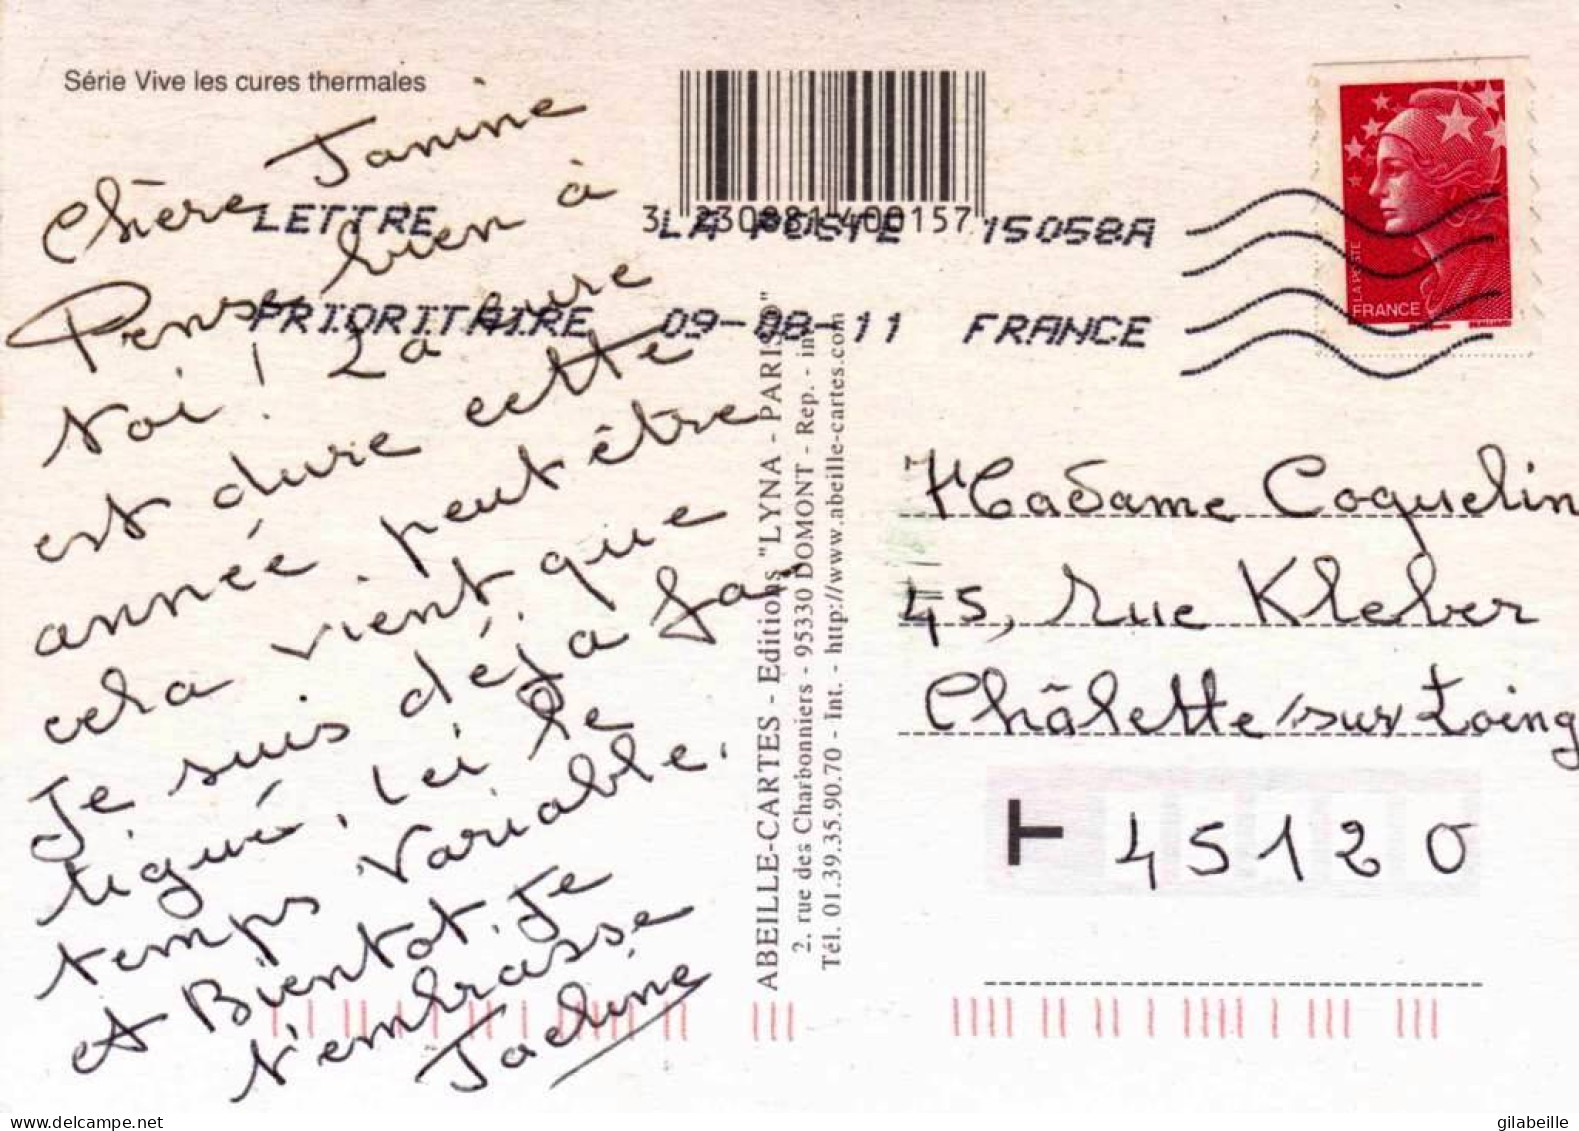 Série Vive les cures thermales
3 230881 400157
LETTRE LA POSTE 15058A
PRIORITAIRE 09-08-11 FRANCE
LA POSTE
FRANCE
Chère Janine
Pense bien à
toi ! La cure
est dure cette
année peut être
cela vient que
Je suis déjà fa,
tigué, ici le
temps variable.
et Bientot. Je
t'embrasse
Jacline
ABEILLE-CARTES - Editions "LYNA - PARIS"
2, rue des Charbonniers - 95330 DOMONT - Rep. - in
Tél. 01.39.35.90.70 - Int. - http://www.abeille-cartes.com
Madame Coquelin
45, rue Kleber
Châlette/sur Loing
T 45120
gilabeille